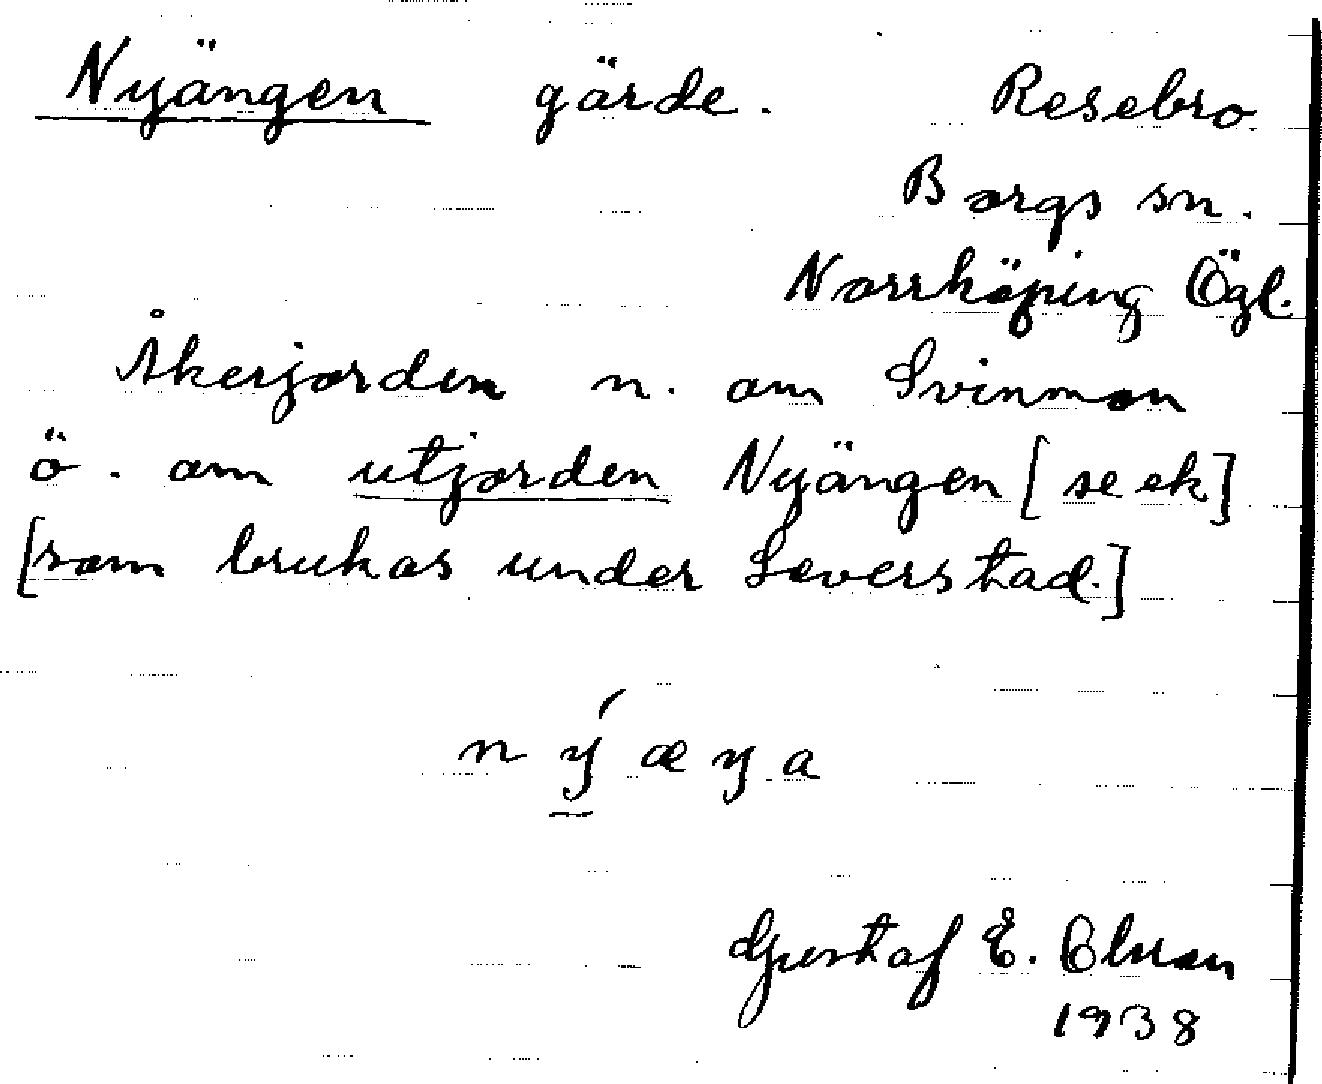 Nyängen gärde. Resebro
Borgs sn.
Norrköping Ögl.
Åkerjorden n. om Svinmon
ö. om utjorden Nyängen [se ek]
[som brukas under Leverstad.]
n ý æ ŋ a
Gustaf E.
1938